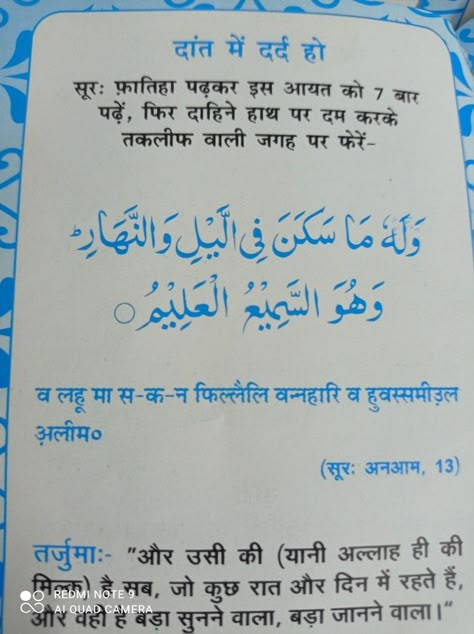 दांत में दर्द हो
सूर: फ़ातिहा पढ़कर इस आयत को 7 बार
पढ़ें, फिर दाहिने हाथ पर दम करके
तकलीफ वाली जगह पर फेरें-
وَلَهٗ مَا سَكَنَ فِی الَّيْلِ وَالنَّهَارِ ؕ
وَهُوَ السَّمِيْعُ الْعَلِيْمُ ○
व लहू मा स-क-न फिल्लैलि वन्नहारि व हुवस्समीउ़ल
अ़लीम०
(सूर: अनआम, 13)
तर्जुमा:- "और उसी की (यानी अल्लाह ही की
मिल्क) है सब, जो कुछ रात और दिन में रहते हैं,
और वही है बड़ा सुनने वाला, बड़ा जानने वाला।"
REDMI NOTE 9
AI QUAD CAMERA